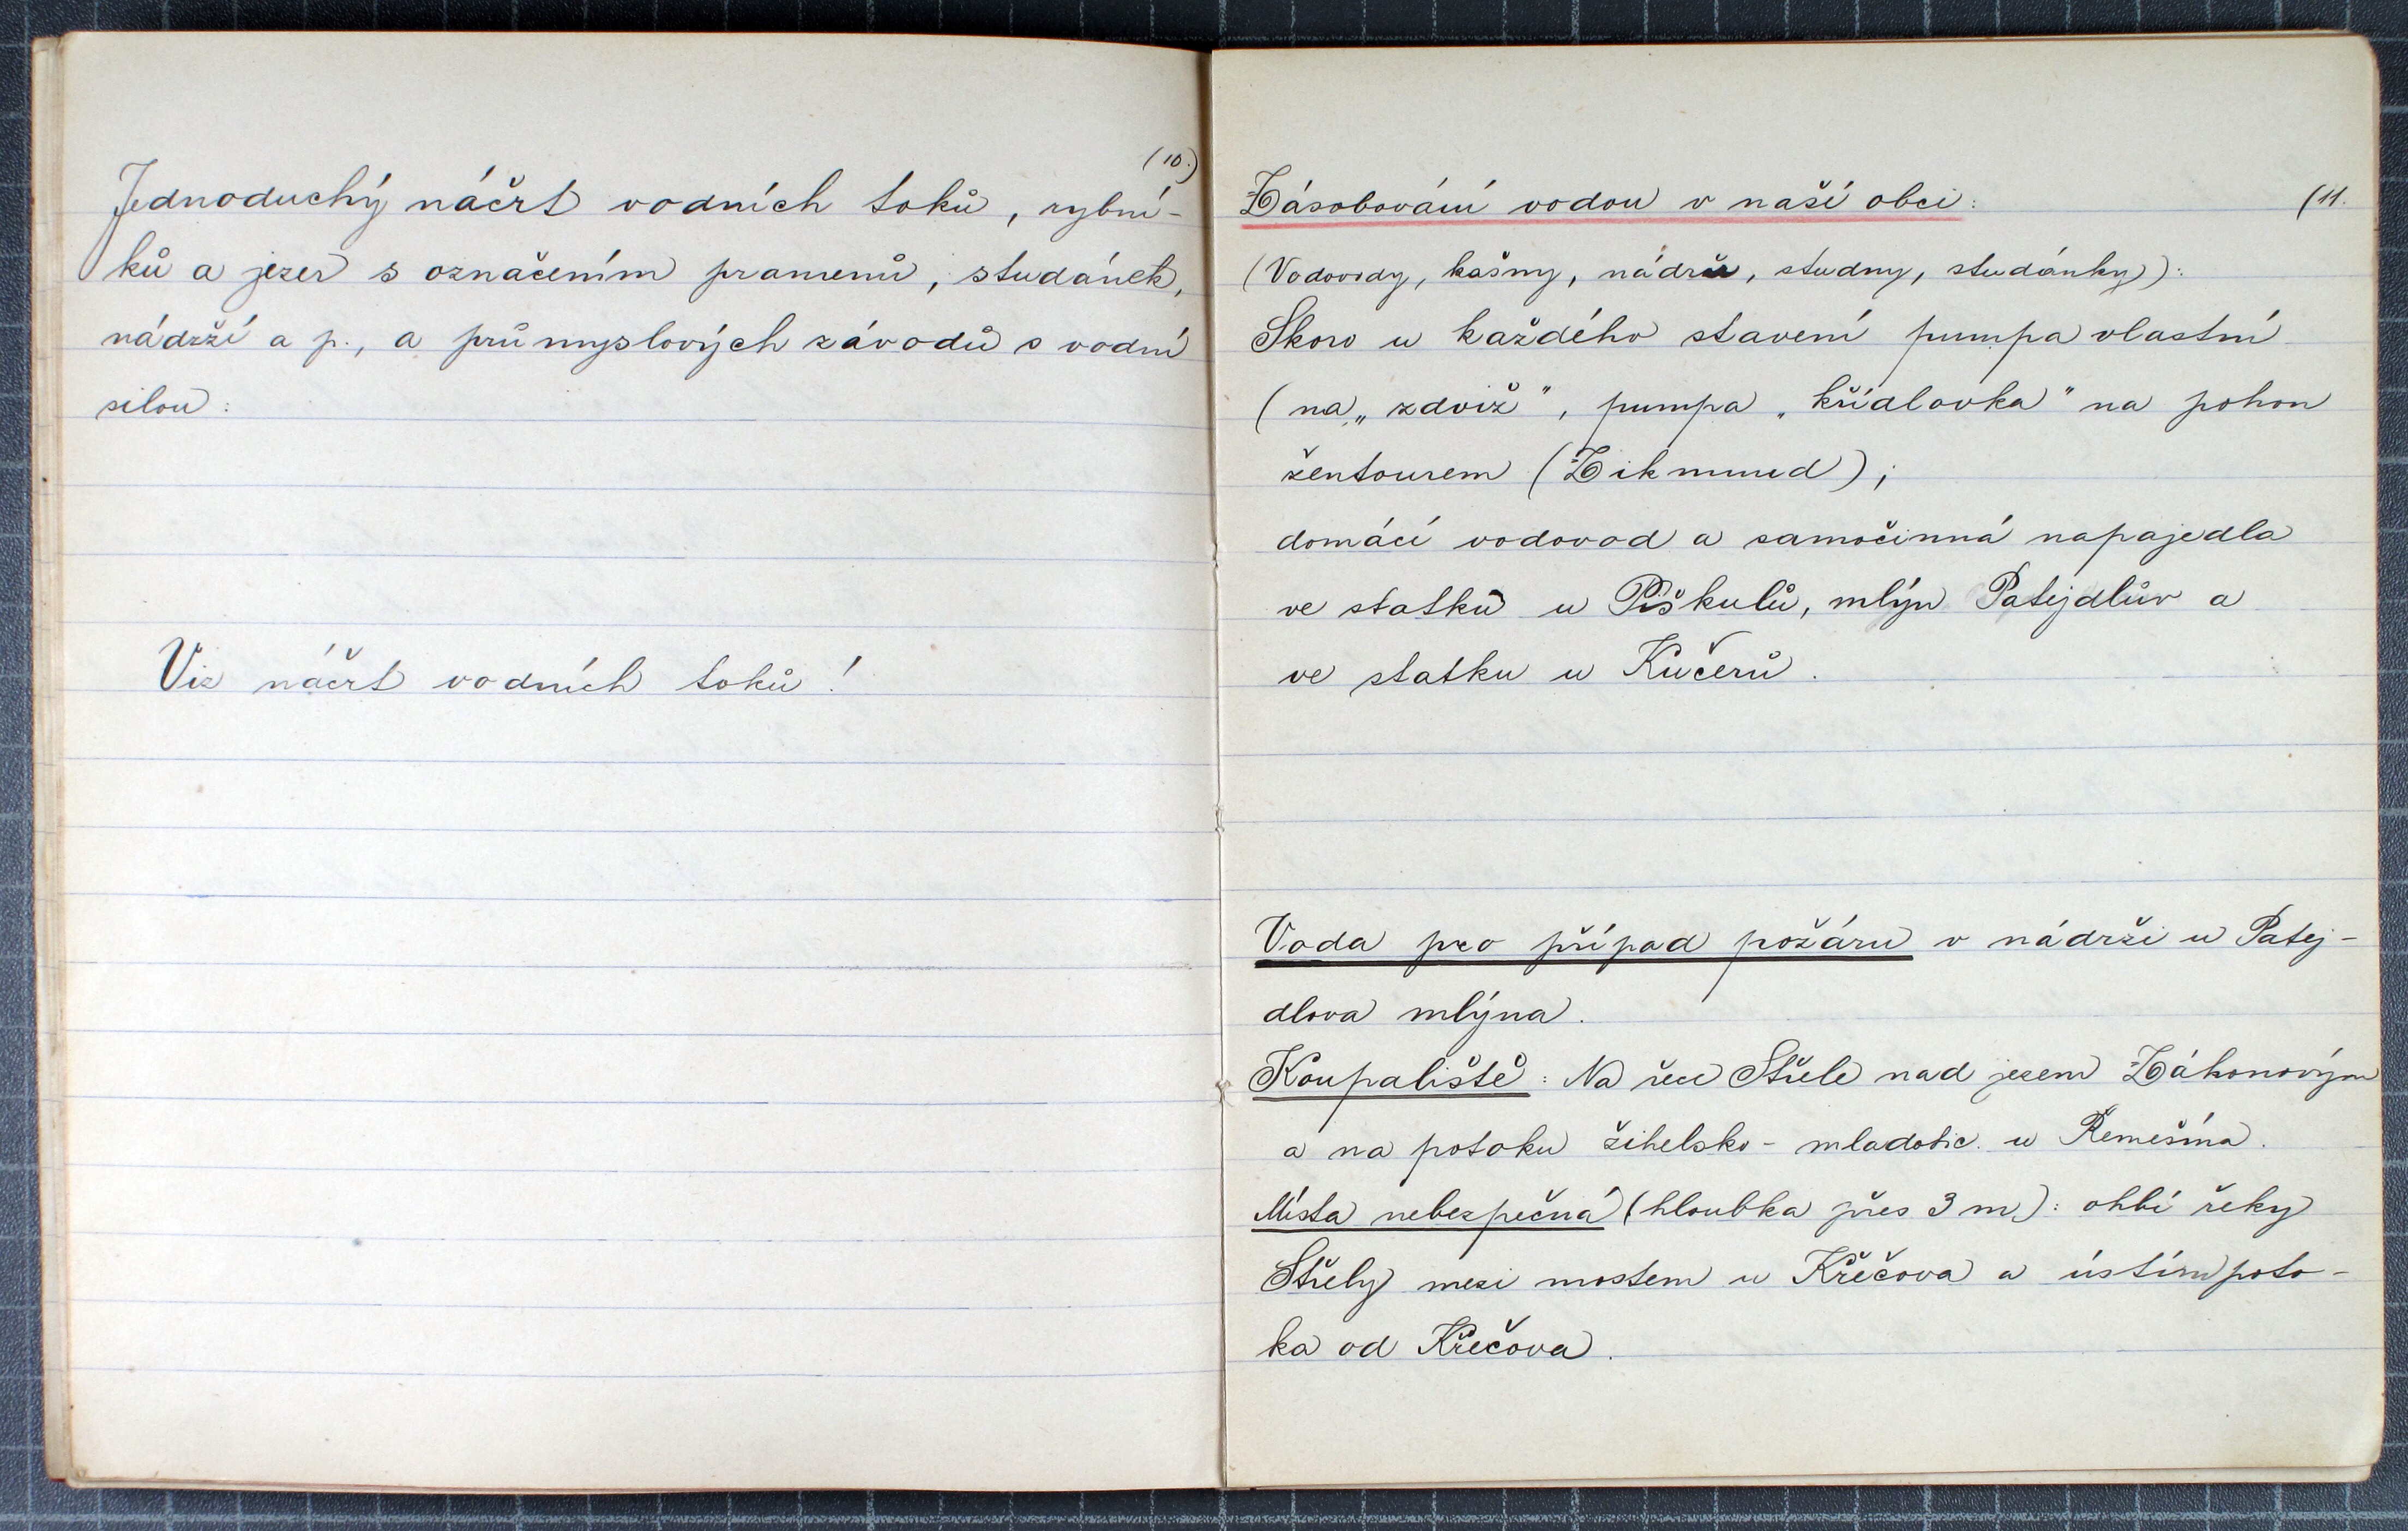 (10.)
Jednoduchý náčrt vodních toků, rybní-
ků a jezer s označením pramenů, studánek,
nádrží a p., a průmyslových závodů s vodní
silou:
Viz náčrt vodních toků!
Zásobování vodou v naší obci: (11.
(Vodovody, kašny, nádrže, studny, studánky):
Skoro u každého stavení pumpa vlastní
(na „zdviž", pumpa „křídlovka" na pohon
žentourem (Zikmund);
domácí vodovod a samočinná napajedla
ve statku u Piškulů, mlýn Patejdlův a
ve statku u Kučerů.
Voda pro případ požáru v nádrži u Patej-
dlova mlýna.
Koupaliště: Na řece Střele nad jezem Zákonovým
a na potoku žihelsko-mladotic. u Remešína.
Místa nebezpečná (hloubka přes 3 m): ohbí řeky
Střely mezi mostem u Křečova a ústím poto-
ka od Křečova.